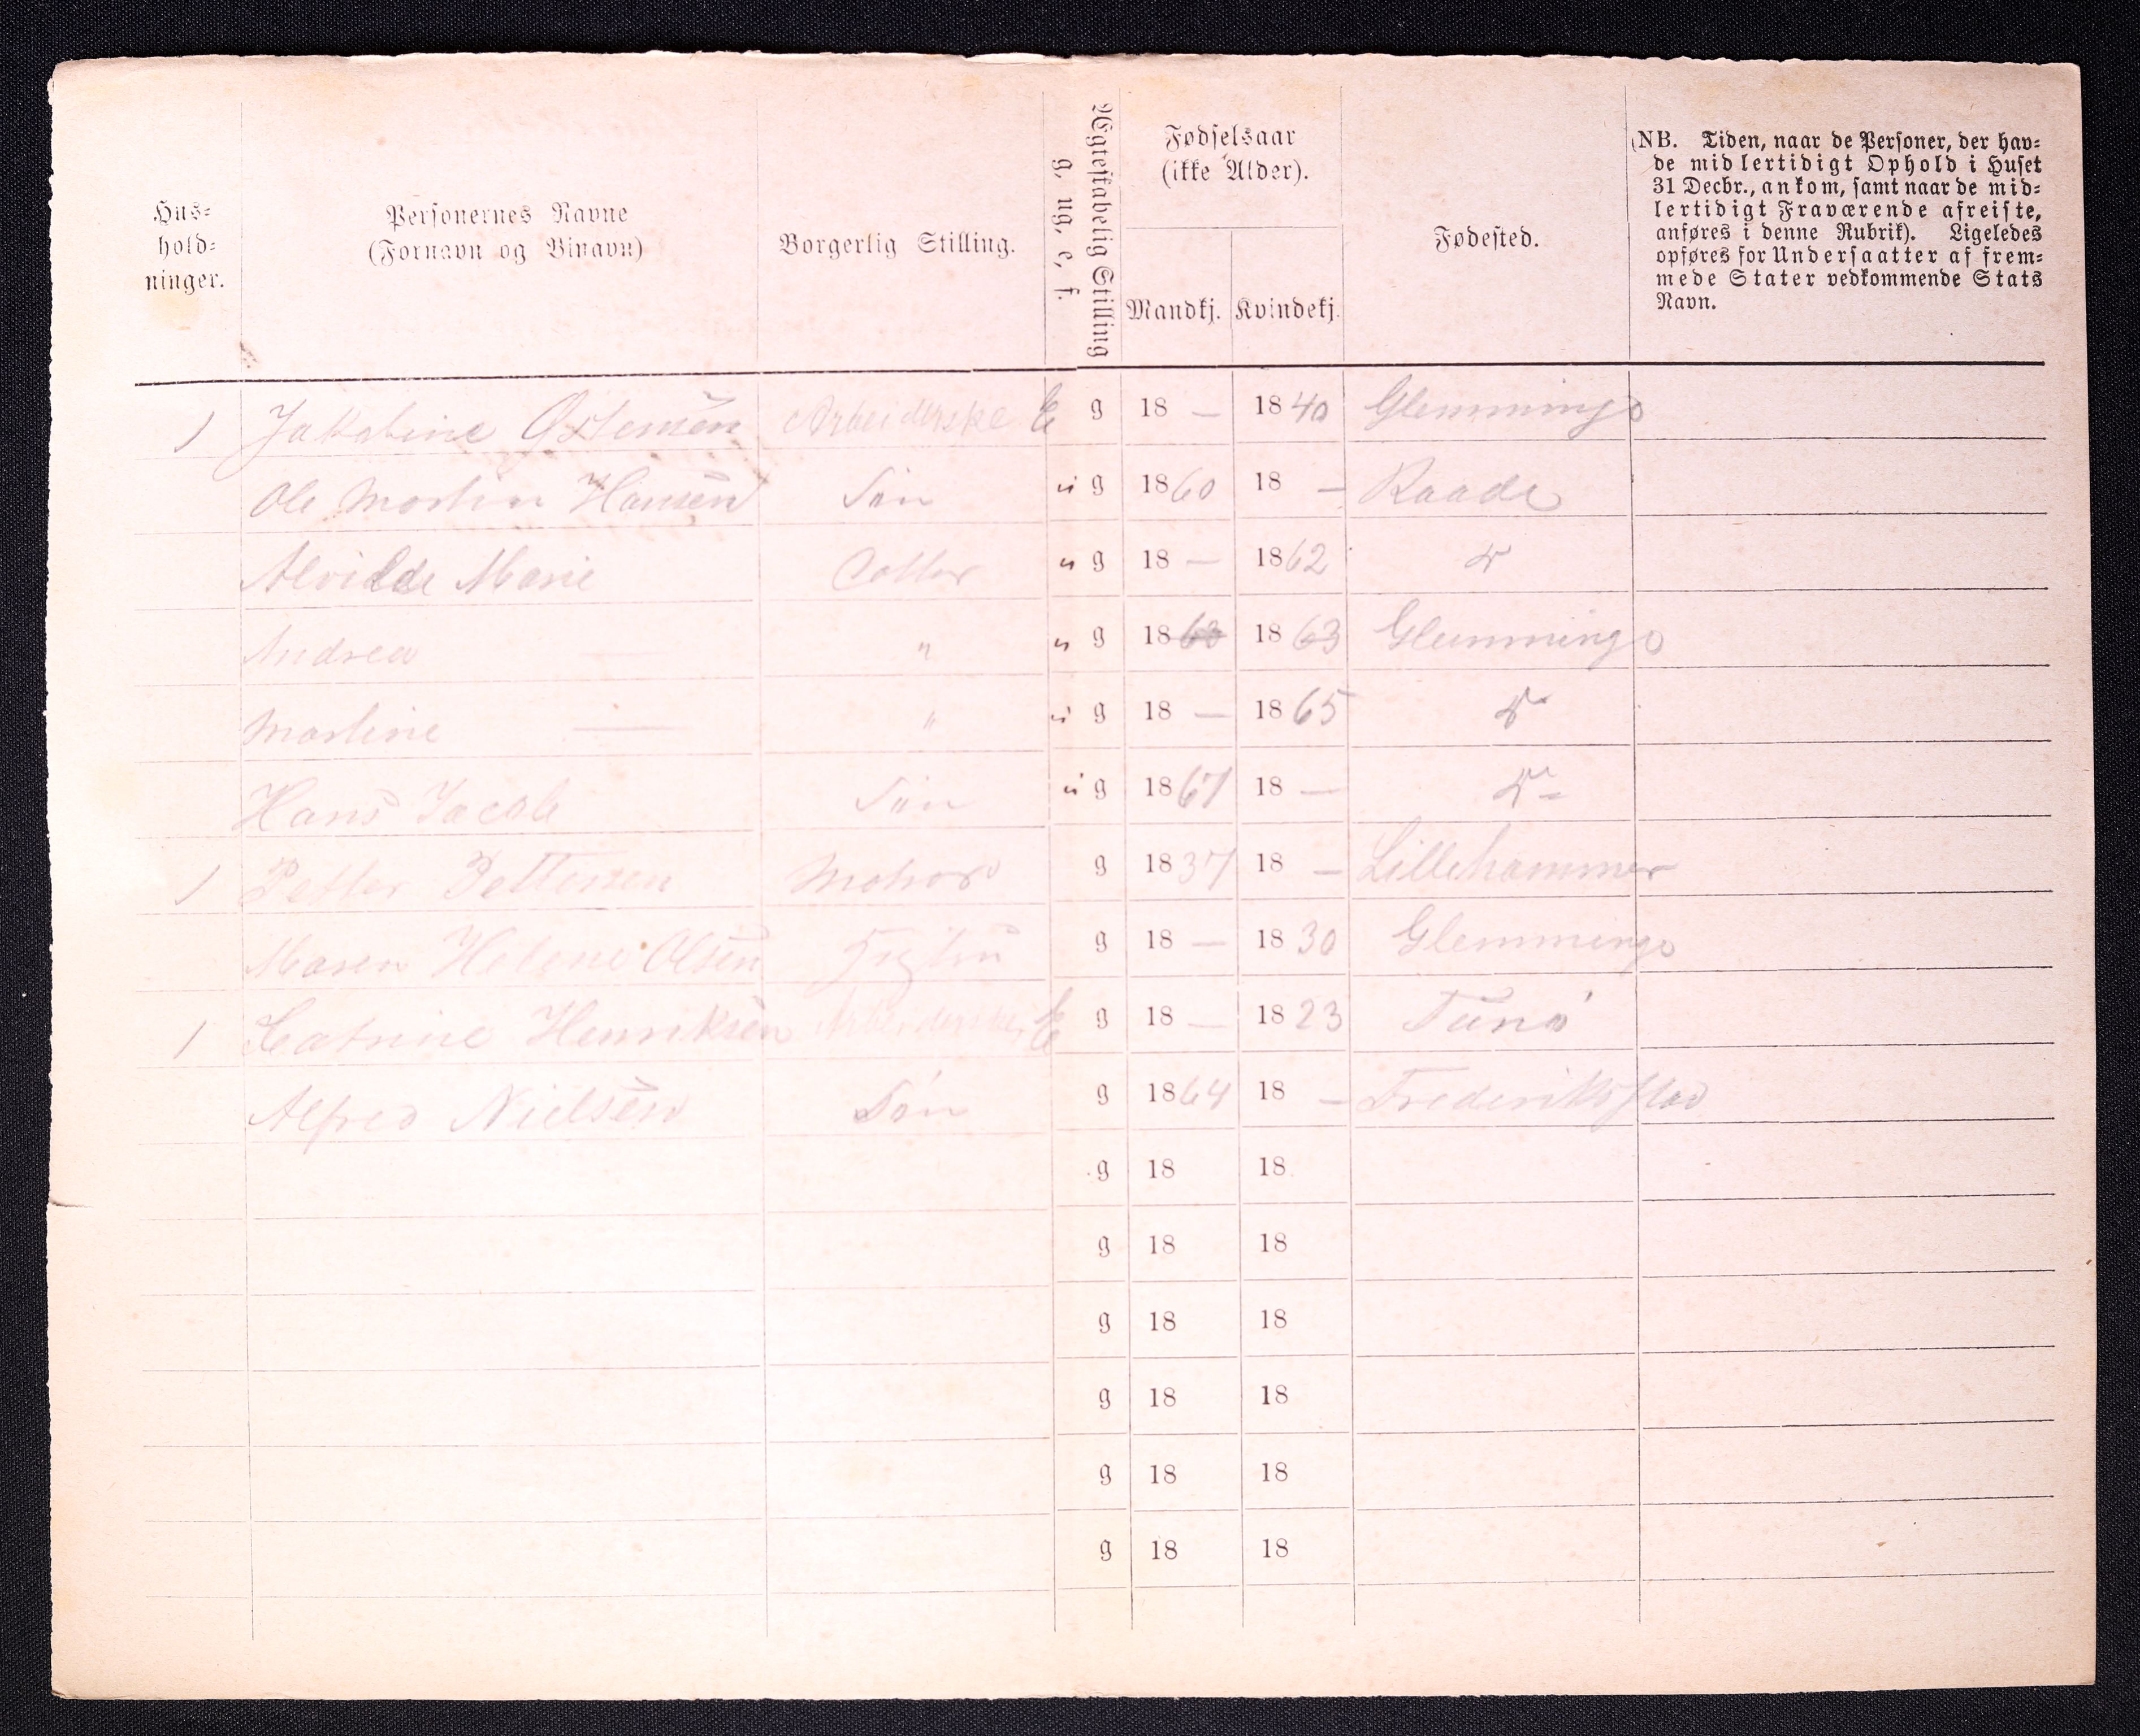 Hus-
hold-
ninger.
Personernes Navne
(Fornavn og Binavn)
Borgerlig Stilling.
Ægteskabelig Stilling
g, ug, e, f.
Fødselsaar
(ikke Alder).
Mandkj. Kvindekj.
Fødested.
(NB. Tiden, naar de Personer, der hav-
de midlertidigt Ophold i Huset
31 Decbr., ankom, samt naar de mid-
lertidigt Fraværende afreiste,
anføres i denne Rubrik). Ligeledes
opføres for Undersaatter af frem-
mede Stater vedkommende Stats
Navn.
1 Jakobine Ostensen Arbeiderske E g 18 — 1840 Glemminge
Ole Martin Hansen Søn u g 1860 18 — Raade
Alvilde Marie Datter u g 18 — 1862 do
Andrea — " u g 1863 1863 Glemminge
Martine — " u g 18 — 1865 do
Hans Jacob Søn u g 1867 18 — do
1 Petter Pettersen g 1837 18 — Lillehammer
Maren Helene Olsen g 18 — 1830 Glemminge
1 Catrine Henriksen Arbeiderske E g 18 — 1823 Tunø
Alfred Nielsen Søn g 1864 18 — Frederikstad
g 18 18
g 18 18
g 18 18
g 18 18
g 18 18
g 18 18